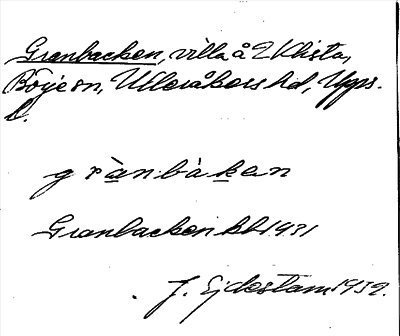 Granbacken, villa å Klista,
Börje sn, Ulleråkers hd, Upps.
l.
grànbàkan
Granbacken kb 1931
J. Ejdestam 1952.